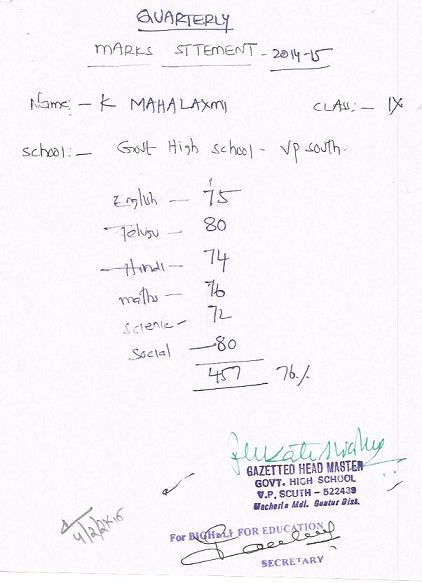 QUARTERLY
MARKS STTEMENT - 2014-15
Name: - K MAHALAXMI CLASS: - IX
School: - Govt High school - VP south.
English - 75
Telugu - 80
Hindi - 74
maths - 76
Science - 72
Social - 80
457 76%
GAZETTED HEAD MASTER
GOVT. HIGH SCHOOL
V.P. SOUTH - 522439
Macherla Mdl. Guntur Dist.
For BIGHELP FOR EDUCATION
SECRETARY